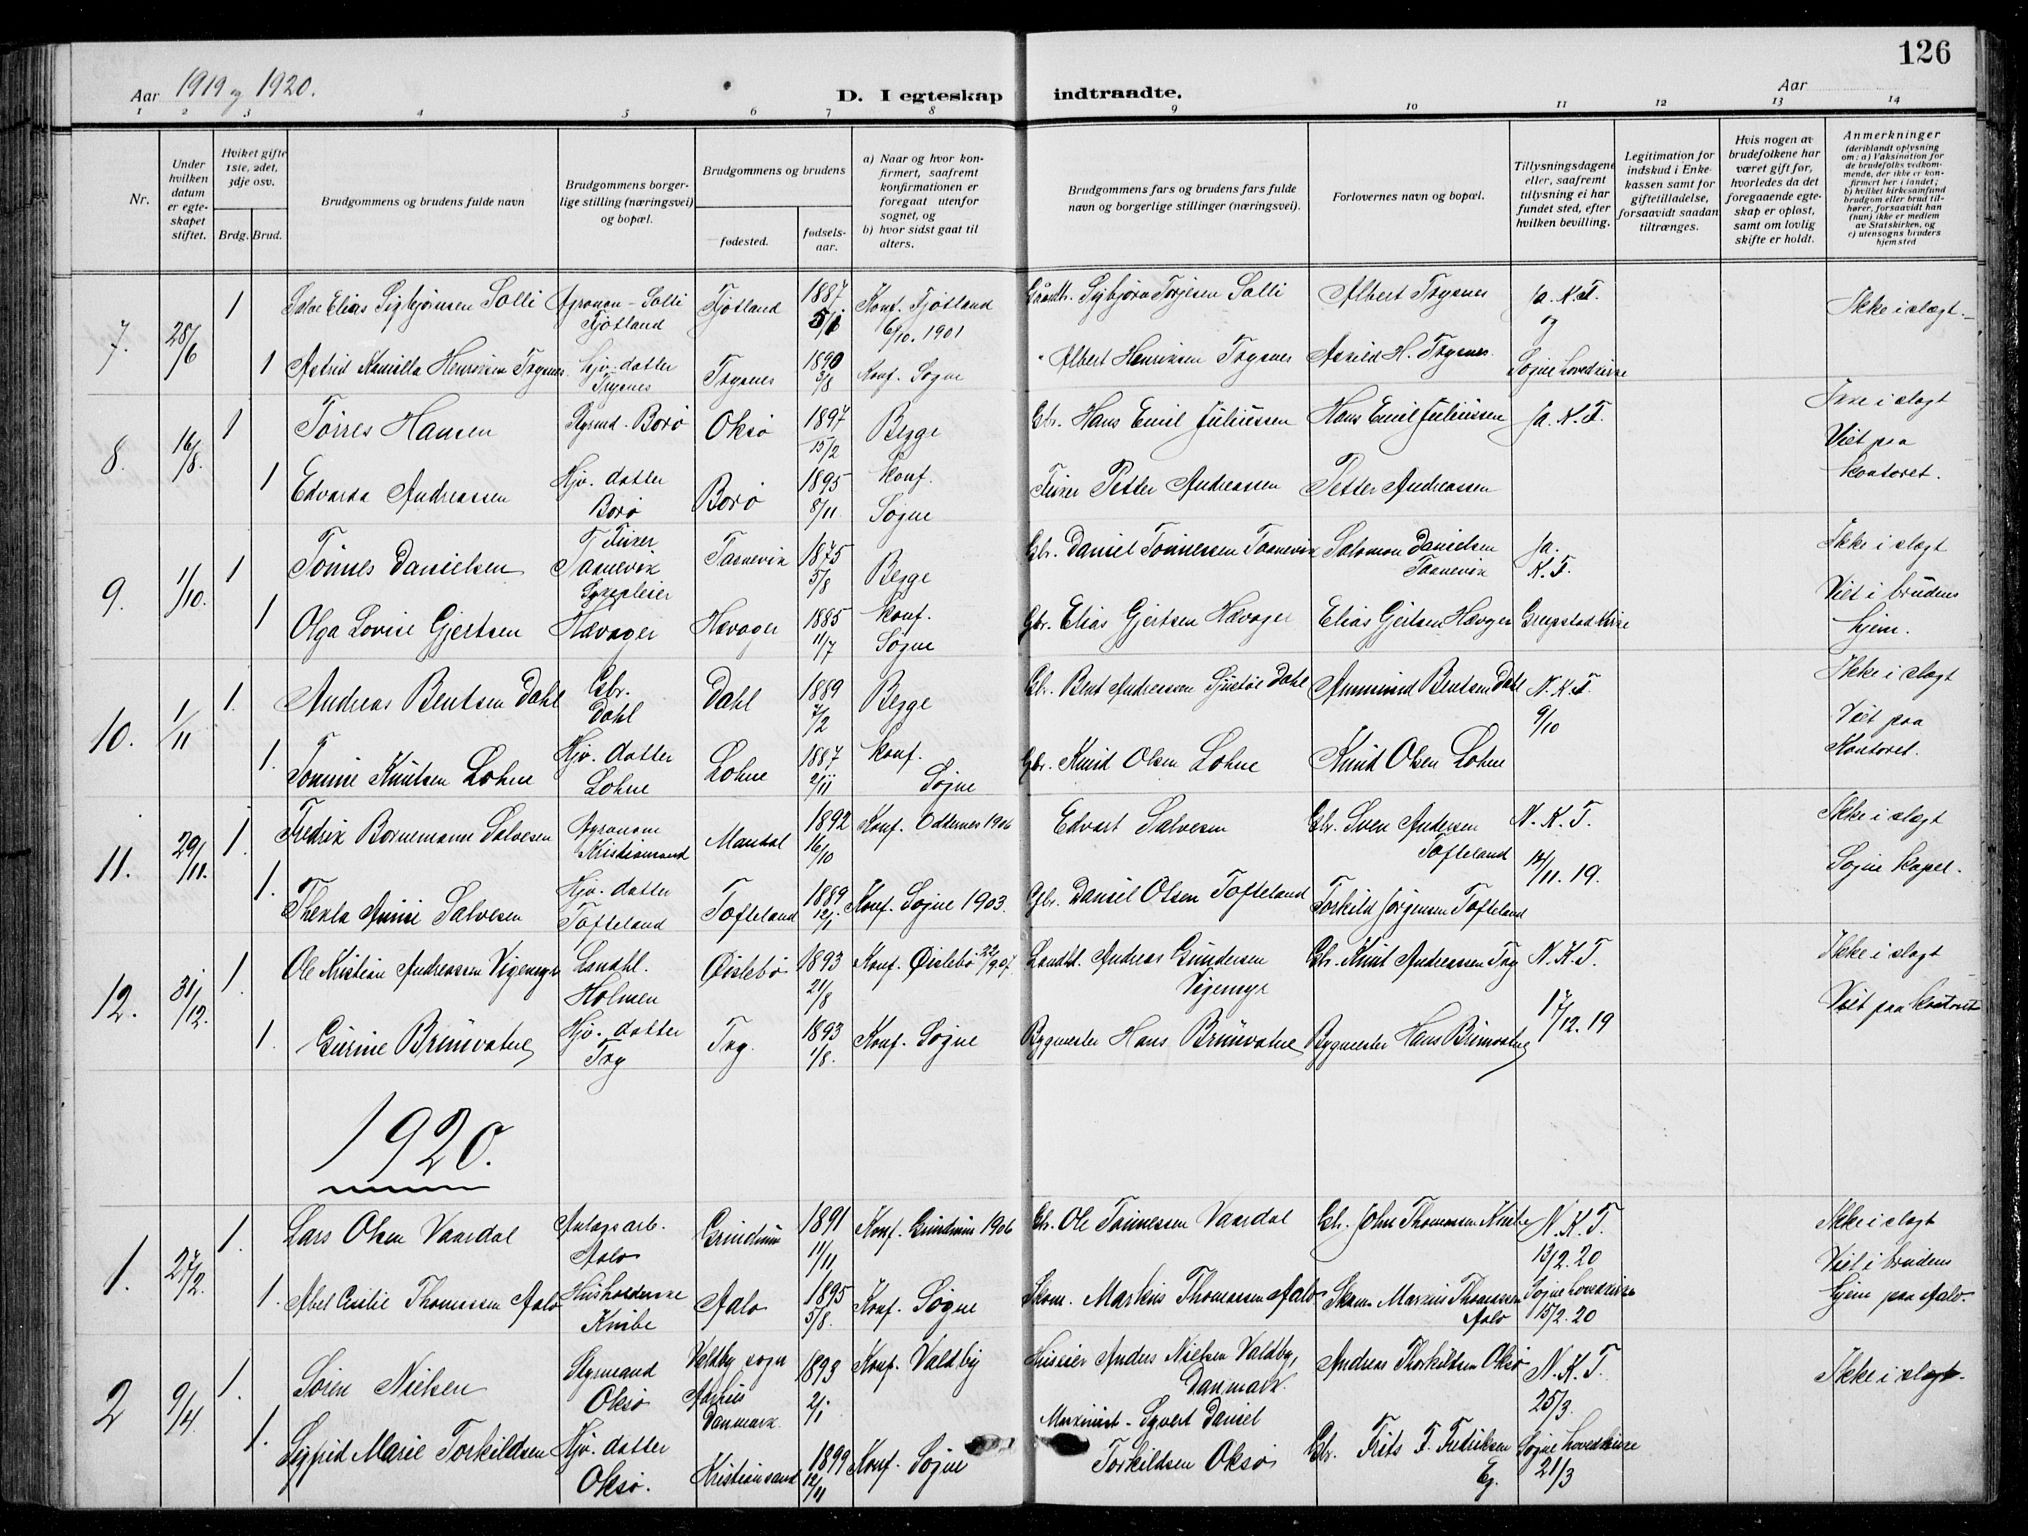 126
Aar 1919 og 1920.
D. I egteskap indtraadte.
Aar
1 2 3 4 5 6 7 8 9 10 11 12 13 14
Nr.
Under hvilken datum er egteskapet stiftet.
Hvilket gifte 1ste, 2det, 3dje osv.
Brdg. Brud.
Brudgommens og brudens fulde navn
Brudgommens borgerlige stilling (næringsvei) og bopæl.
Brudgommens og brudens
fødested.
fødselsaar.
a) Naar og hvor konfirmert, saafremt konfirmationen er foregaat utenfor sognet, og
b) hvor sidst gaat til alters.
Brudgommens fars og brudens fars fulde navn og borgerlige stillinger (næringsvei).
Forlovernes navn og bopæl.
Tillysningsdagene eller, saafremt tillysning ei har fundet sted, efter hvilken bevilling.
Legitimation for indskud i Enkekassen samt for giftetilladelse, forsaavidt saadan tiltrænges.
Hvis nogen av brudefolkene har været gift før, hvorledes da det foregaaende egteskap er opløst, samt om lovlig skifte er holdt.
Anmerkninger (deriblandt oplysning om: a) Vaksination for de brudefolks vedkommende, der ikke er konfirmert her i landet; b) hvilket kirkesamfund brudgom eller brud tilhører, forsaavidt han (hun) ikke er medlem av Statskirken, og c) utensogns bruders hjemsted
7. 28/6 1 Salve Elias Sigbjørnsen Solli Agronom - Solli Fjotland Fjotland 1887 5/1 Konf. Fjotland 6/10. 1901 Gaardbr. Sigbjørn Torjesen Solli Albert Trysnes Ja. K. T. og Ikke i slegt.
1 Astrid Kamilla Henriksen Trysnes Hjv. datter Trysnes Trysnes 1890 3/8 Konf. Søgne " Albert Henriksen Trysnes Astrid H. Trysnes Søgne hovedkirke
8. 16/8. 1 Tørres Hansen Styrmd. Borø Oksø 1897 15/2 Begge Gbr. Hans Emil Juliussen Hans Emil Juliussen Ja. K. T. Ikke i slegt
1 Edvarda Andreassen Hjv. datter Borø Borø 1895 8/11 konf. Søgne Fisker Petter Andreassen Petter Andreassen Viet paa kontoret.
9. 1/10. 1 Tønnes Danielsen Fisker Taanevik Taanevik 1875 5/8 Begge Gbr. Daniel Tønnessen Taanevik Salomon Danielsen Taanevik Ja. K. T. Ikke i slegt
1 Olga Lovise Gjertsen Hævager Hævager 1885 11/7 konf. Søgne Gbr. Elias Gjertsen Hævager Elias Gjertsen Hævager Greipstad kirke Viet i brudens hjem.
10. 1/11 1. Andreas Bentsen Dahl Gbr. Dahl Dahl 1889 7/2 Begge Gbr. Bent Andreassen Dahl Ammund Bentsen Dahl N. K. T. 9/10 Ikke i slegt
1. Tomine Knutsen Lohne Hjv. datter Lohne Lohne 1887 2/11 konf. Søgne Gbr. Knud Olsen Lohne Knud Olsen Lohne Viet paa Kontoret.
11. 29/11. 1. Fredrik Bornemann Salvesen Agronom Kristiansand Mandal 1892 16/10 Konf. Oddernes 1906 Edvart Salvesen Gbr. Sven Andersen Tofteland N. K. T. Ikke i slegt
1. Thekla Amine Salvesen Hjv. datter Tofteland Tofteland 1889 12/1 Konf. Søgne 1903. Gbr. Daniel Olsen Tofteland Torkild Jørgensen Tofteland 14/11. 19. Søgne kapel.
12. 31/12. 1. Ole Kristian Andreassen Vigemyr Landhl. Holmen Øislebø 1893 21/8 Konf. Øislebø 22/9 07 Landhl. Andreas Gundersen Vigemyr Gbr. Knut Andreassen Try N. K. T. Ikke i slegt
1. Gurine Brunvatne Hjv. datter Try Try. 1893 1/8. Konf. Søgne Bygmester Hans Brunvatne Bygmester Hans Brunvatne 17/12. 19 Viet paa kontoret
1920.
1. 27/2. 1. Lars Olsen Vaardal Anlægsarb. Aalo Grindum 1891 11/11 Konf. Grindum 1906 Gbr. Ole Tønnessen Vaardal Gbr. John Thomassen Knibe N. K. T. 13/2. 20 Ikke i slegt
1. Abel Cecilie Thomassen Aalo Husholderske Knibe Aalo 1895 5/8. Konf. Søgne Skom. Markus Thomassen Aalo Skom. Markus Thomassen Aalo Søgne hovedkirke 15/2. 20 Viet i brudens hjem paa Aalo.
2 9/4. 1. Søren Nielsen Styrmand Oksø Valdby sogn Aarhus Danmark 1893 2/1 Konf. Valdby Huseier Anders Nielsen Valdby, Danmark. Andreas Thorkildsen Oksø N. K. T. 25/3. Ikke i slegt.
1. Sigfrid Marie Torkildsen Hjv. datter Oksø. Kristiansand 1899 12/11 Konf. Søgne Maskinist - Syvert Daniel Torkildsen Oksø Gbr. Frits F. Fredriksen Eg. Søgne hovedkirke 21/3